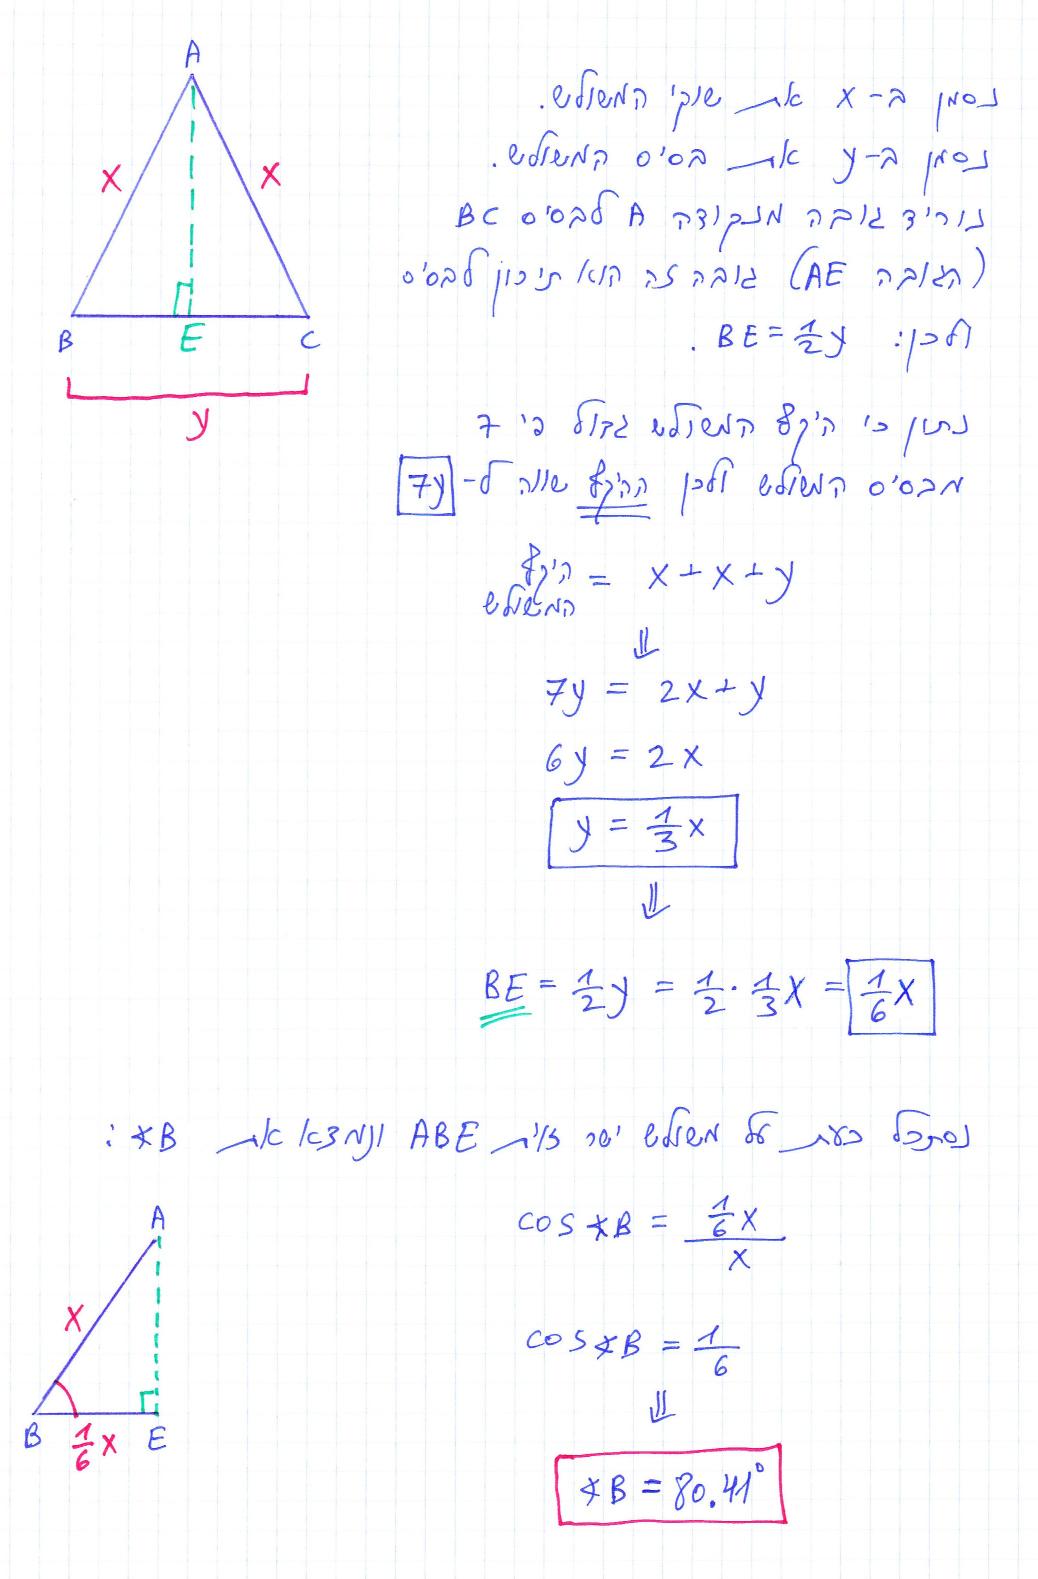 A
x
x
B
E
C
y
נסמן ב-x את שוקי המשולש.
נסמן ב-y את בסיס המשולש.
נוריד גובה מנקודה A לבסיס BC
(הגובה AE) גובה זה הוא תיכון לבסיס
ולכן: BE = 1/2 y .
נתון כי היקף המשולש גדול פי 7
מבסיס המשולש ולכן ההיקף שווה ל- 7y
היקף המשולש = x + x + y
⇓
7y = 2x + y
6y = 2x
y = 1/3 x
⇓
BE = 1/2 y = 1/2 · 1/3 x = 1/6 x
נסתכל כעת על משולש ישר זוית ABE ונמצא את ∢B :
A
x
B
1/6 x
E
cos ∢B = (1/6 x)/x
cos ∢B = 1/6
⇓
∢B = 80.41°